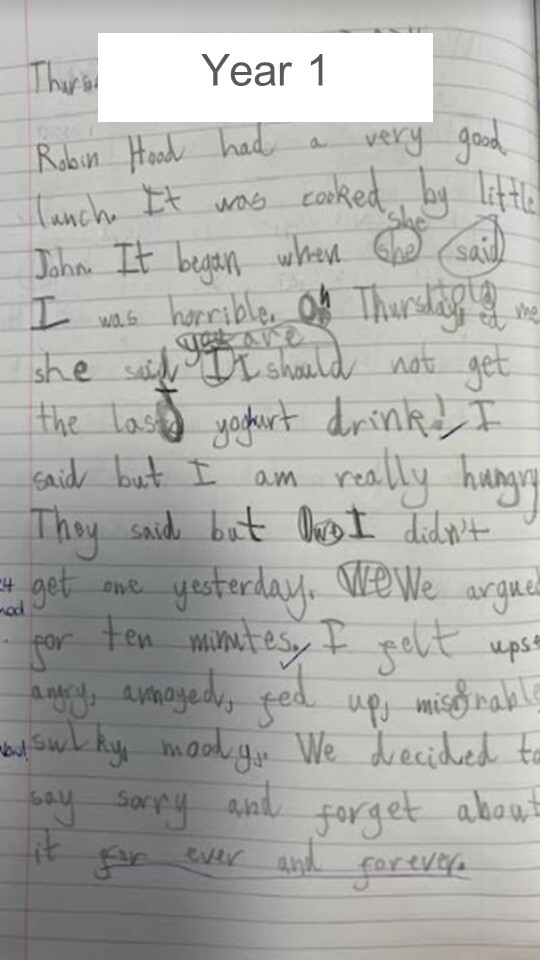 Year 1
Thurs
Robin Hood had a very good
lunch. It was cooked by little
she
John. It began when she said
I was horrible. Oh Thursday, told me
you are
she said I I should not get
the last yoghurt drink! I
said but I am really hungry
They said but I didn't
get one yesterday. We We argued
for ten minutes. I felt upse
angry, annoyed, fed up, misrable
sulky, moody. We decided to
say sorry and forget about
it for ever and forever.